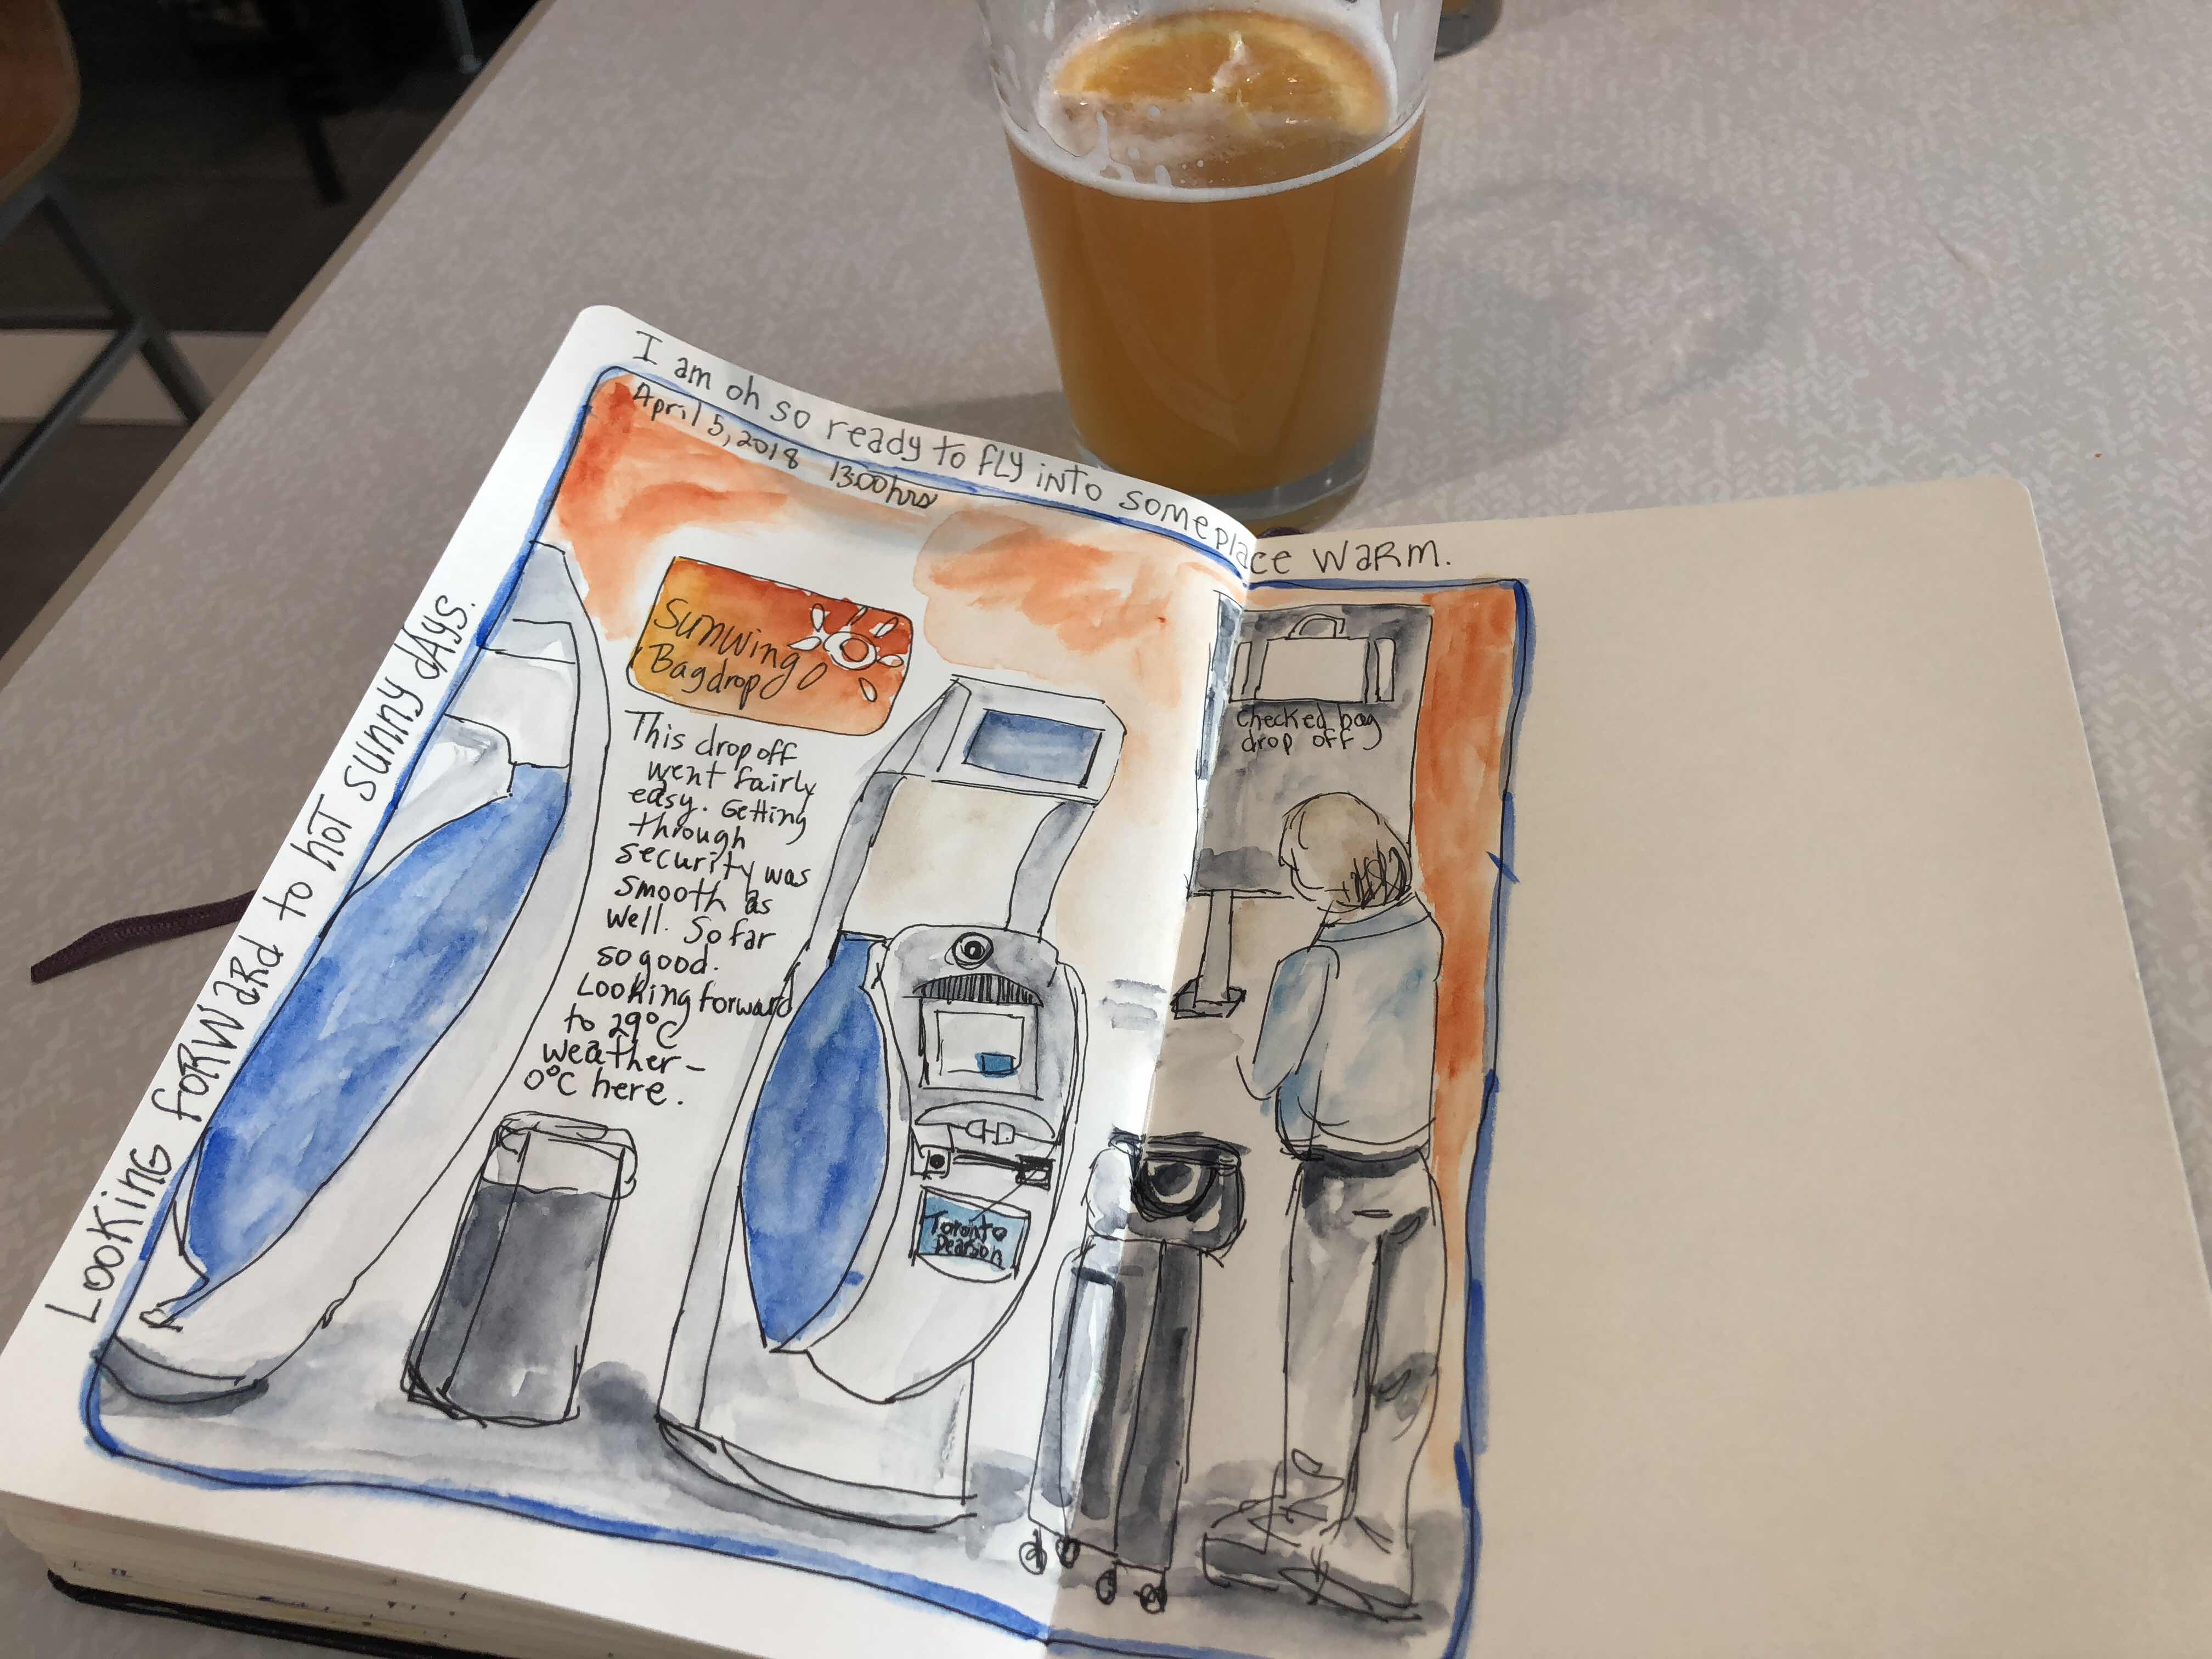 I am oh so ready to fly into someplace warm.
April 5, 2018 13:00 hrs
Looking forward to hot sunny days.
Sunwing
Bagdrop
This drop off
went fairly
easy. Getting
through
security was
smooth as
well. So far
so good.
Looking forward
to 29°C
weather –
0°C here.
Toronto
Pearson
Checked bag
drop off